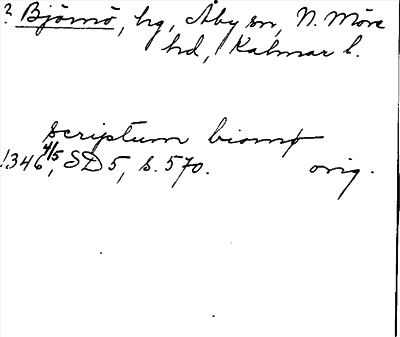 ? Björnö, hg, Åby sn, N. Möre
hd, Kalmar l.
scriptum biornø
1346 4/5, SD 5, s. 570. orig.